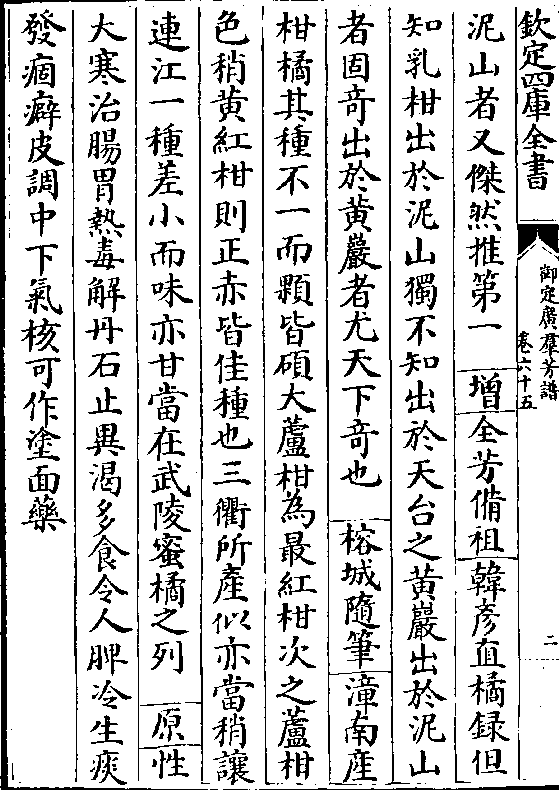 欽定四庫全書
御定廣羣芳譜
卷六十五
二
泥山者又傑然推第一 增 全芳備祖 韓彥直橘録但
知乳柑出於泥山獨不知出於天台之黄巖出於泥山
者固竒出於黄巖者尤天下竒也 榕城隨筆 漳南産
柑橘其種不一而顆皆碩大蘆柑為最紅柑次之蘆柑
色稍黄紅柑則正赤皆佳種也三衢所産似亦當稍讓
連江一種差小而味亦甘當在武陵蜜橘之列 原 性
大寒治腸胃熱毒解丹石止異渴多食令人脾冷生痰
發痼癖皮調中下氣核可作塗面藥